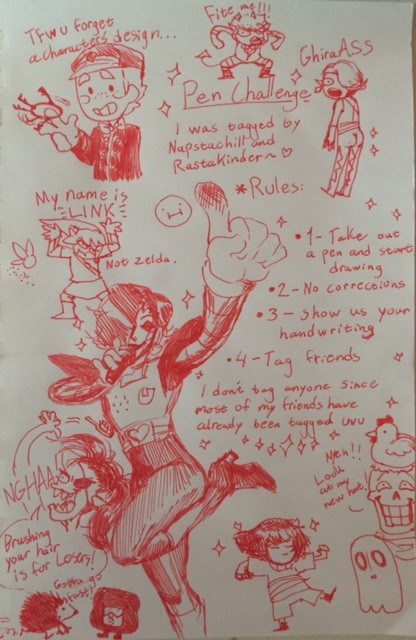 TFW u forget
a characters design...
Fite me!!!
GhiraASS
Pen Challenge
I was tagged by
Napstachill and
RastaKinder~
*Rules:
•1- Take out
a pen and start
drawing
•2- No corrections
•3- show us your
handwriting
•4- Tag friends
I don't tag anyone since
most of my friends have
already been tagged UvU
My name is
LINK
Not Zelda.
NGHAAA
Brushing
your hair
is for Losers!
Gotta go
fast!
Nyeh!!
Look
at my
new hat!